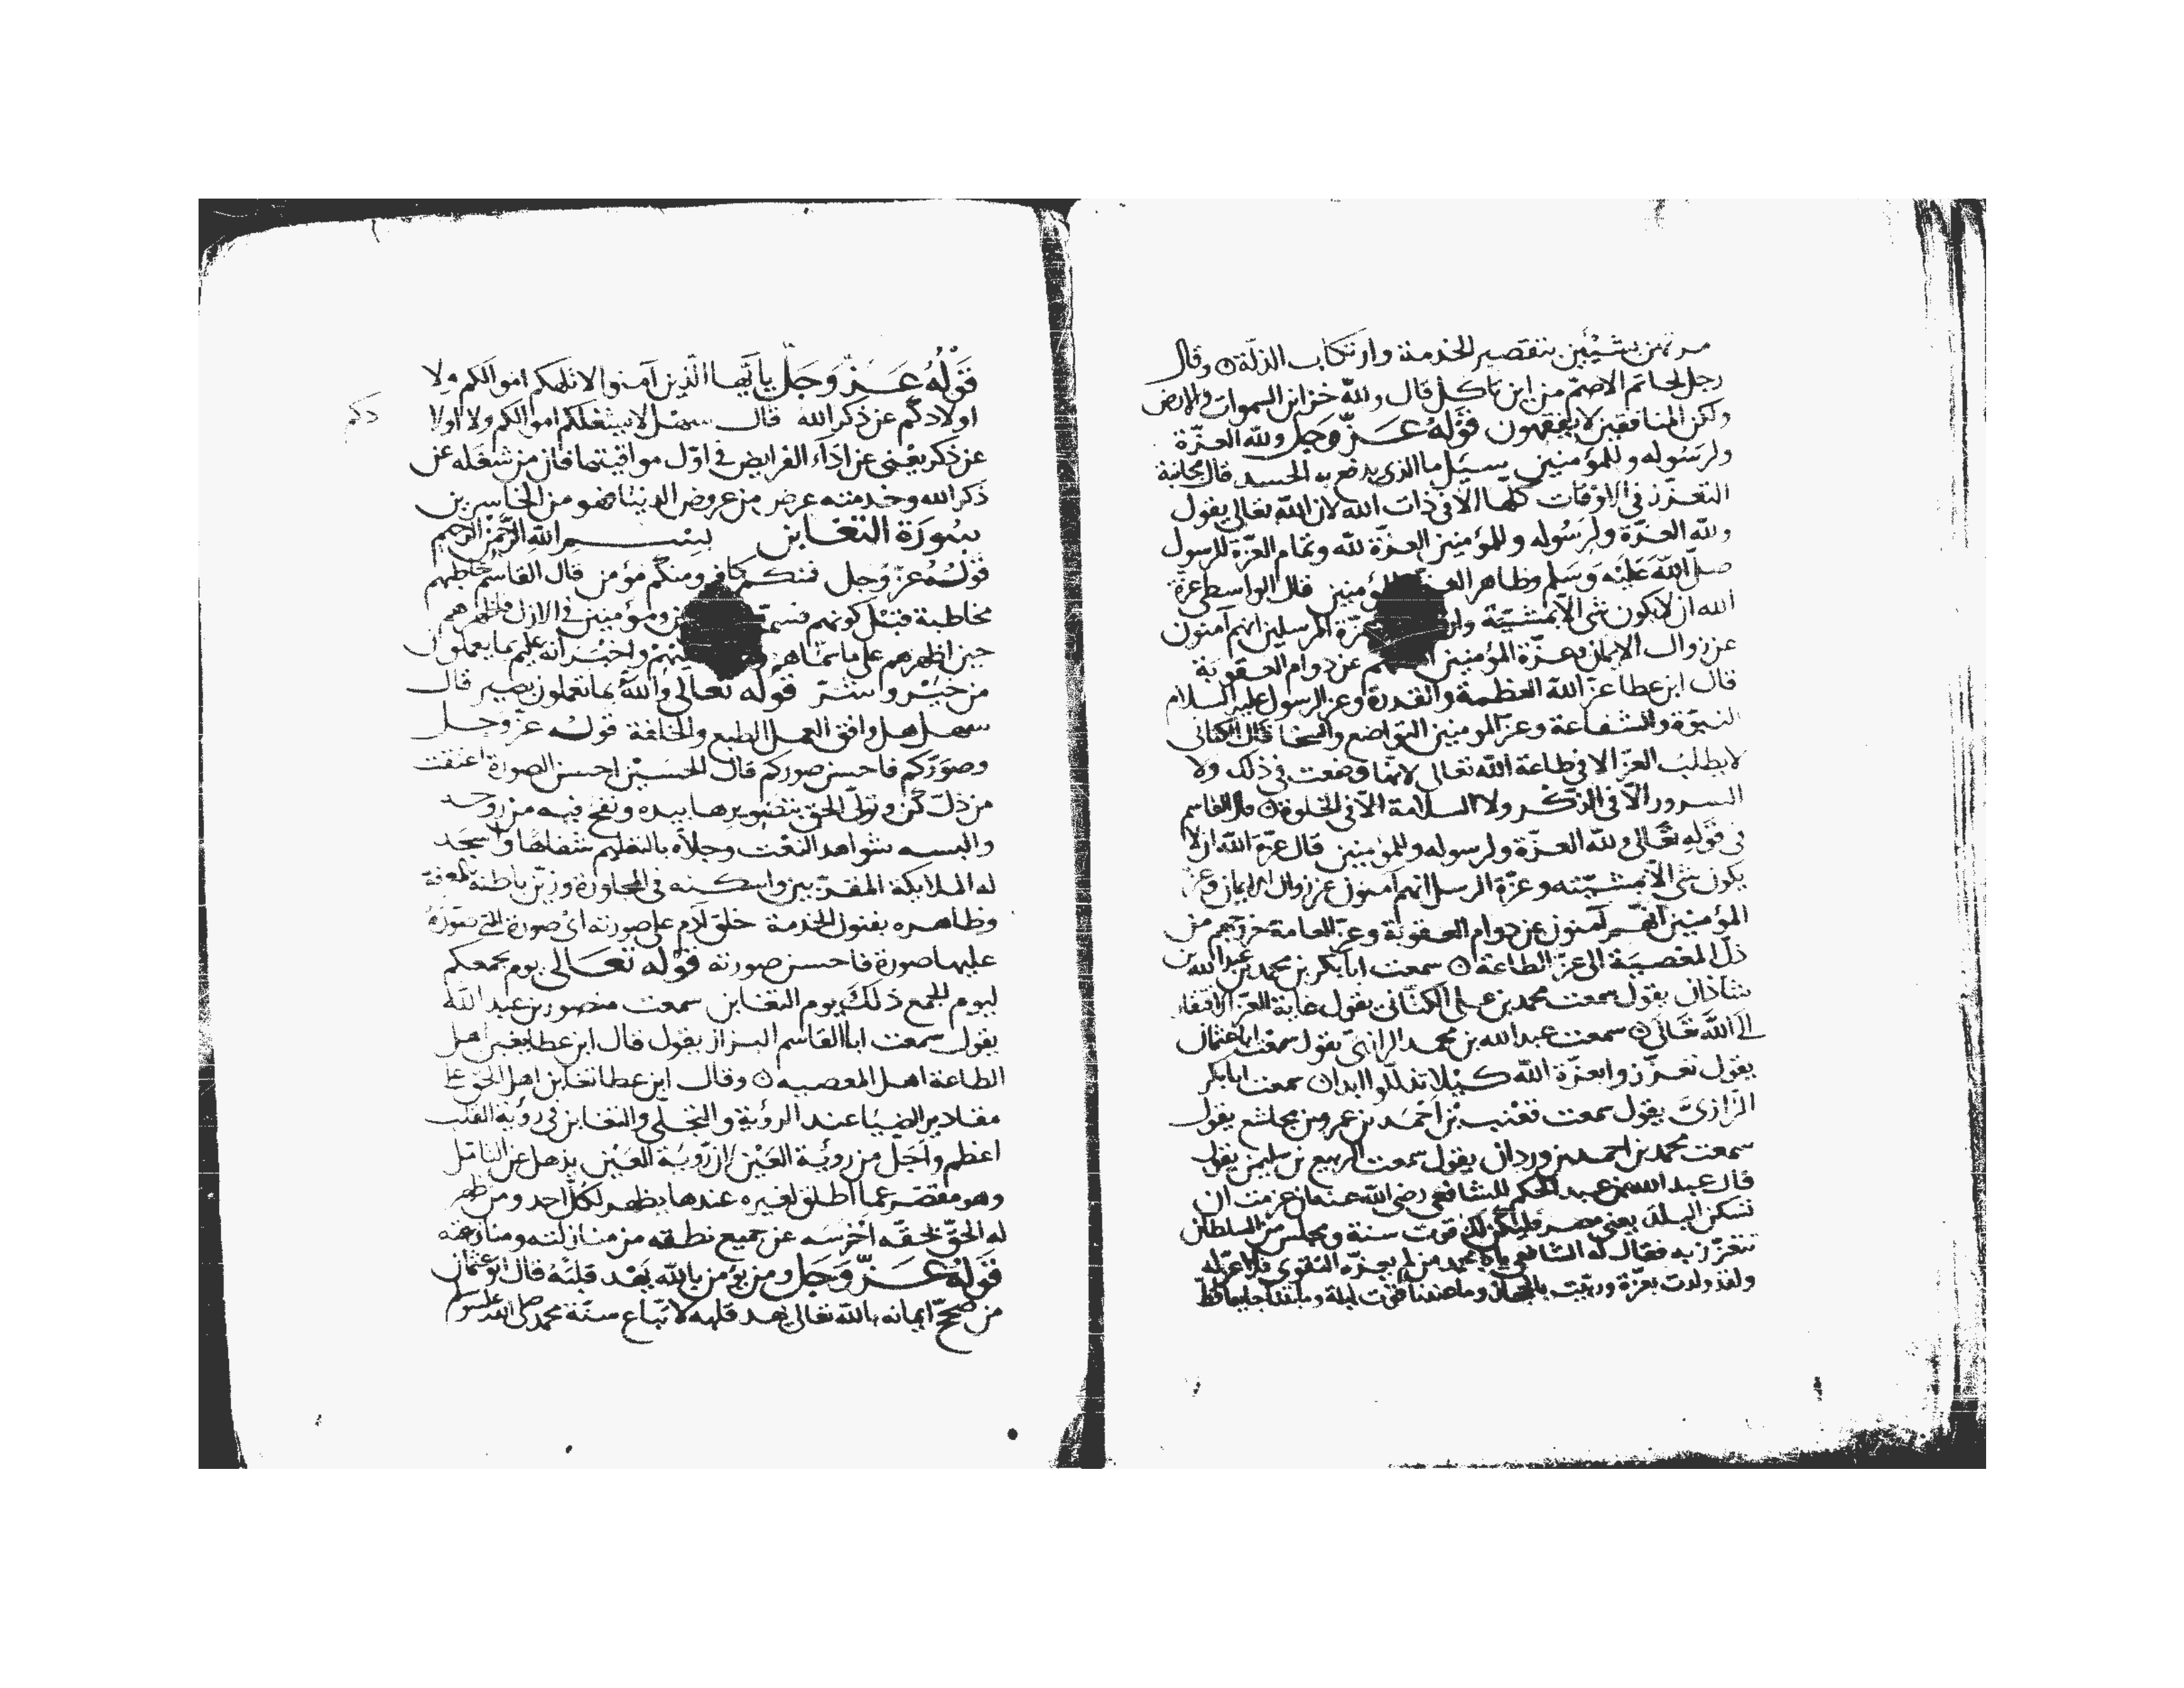 مرتهن بشيئين بتقصير الخدمة وارتكاب الذلة ۞ وقال
رجل لحاتم الاصم من اين تاكل قال ولله خزاين السموات والارض
ولكن المنافقين لا يفقهون قوله عز وجل ولله العزة
ولرسوله وللمؤمنين يسيل ما الذي يدفع به الحسد قال مجانبة
التعزز في الاوقات كلها الا في ذات الله لان الله تعالى يقول
ولله العزة ولرسوله وللمؤمنين العزة لله وتمام العزة للرسول
صلى الله عليه وسلم وظاهر للمؤمنين قال الواسطي عزة
الله ان لا يكون شي الا بمشيته المرسلين انهم آمنون
عن زوال الايمان وعزة المؤمنين عن دوام العقوبة
قال ابن عطا عز الله العظمة والقدرة وعز الرسول عليه السلام
النبوة والشفاعة وعز المومنين التواضع والسخا قال الكتاني
لا يطلب العز الا في طاعة الله تعالى لانها وضعت في ذلك ولا
السرور الا في الذكر ولا السلامة الا في الخلوة ۞ قال القاسم
في قوله تعالى ولله العزة ولرسوله وللمؤمنين قال عزة الله ان لا
يكون شي الا بمشيته وعزة الرسل انهم آمنون عن زوال الايمان وعز
المؤمنين انهم آمنون عن دوام العقوبة وعز العامة خروجهم من
ذل المعصية الى عز الطاعة ۞ سمعت ابا بكر بن محمد بن عبد الله بن
شاذان يقول سمعت محمد بن علي الكتاني يقول غاية العز الافتقار
الى الله تعالى ۞ سمعت عبد الله بن محمد الرازي يقول سمعت ابا عثمان
يقول تعززوا بعزة الله كيلا تذللوا ابدا ۞ سمعت ابا بكر
الرازي يقول سمعت قعنب بن احمد بن عمرو بن مجاشع يقول
سمعت محمد بن احمد بن وردان يقول سمعت الربيع بن سليمن يقول
قال عبد الله بن عبد الحكم للشافعي رضي الله عنه ان عزمت ان
تسكن البلد يعني مصر فليكن لك قوت سنة ومجلس من السلطان
تتعزز به فقال له الشافعي يابا محمد من لم يعزه التقوى فلا عز له
ولقد ولدت بغزة وربيت بالحجاز وما عندنا قوت ليلة وما بتنا جياعا قط
قوله عز وجل يا ايها الذين آمنوا لا تلهكم اموالكم ولا
اولادكم عن ذكر الله قال سهل لا يشغلكم اموالكم ولا اولا
عن ذكر يعني عن اداء الفرايض في اول مواقيتها فان من شغله عن
ذكر الله وخدمته عرض من عروض الدنيا فهو من الخاسرين
سورة التغابن بسم الله الرحمن الرحيم
قوله عز وجل فمنكم كافر ومنكم مؤمن قال القاسم خاطبهم
مخاطبة قبل كونهم فسم ومؤمنين في الازل فاظهرهم
حين اظهرهم على ما سماهم واخبر انه عليم بما يعملون
من خير وشر قوله تعالى والله بما تعملون بصير قال
سهل هل وافق العمل الطبع والخلقة قوله عز وجل
وصوركم فاحسن صوركم قال الحسين احسن الصورة اعتقت
من ذل كن وتولى الحق بتصويرها بيده ونفخ فيه من روحه
والبسه شواهد النعت وجلاه بالتعليم شفاها واسجد
له الملايكة المقربين واسكنه في المجاورة وزين باطنه بالمعرفة
وظاهره بفنون الخدمة خلق آدم على صورته اي صورة التي صوره
عليها صورة فاحسن صورته قوله تعالى يوم يجمعكم
ليوم الجمع ذلك يوم التغابن سمعت منصور بن عبد الله
يقول سمعت ابا القاسم البزاز يقول قال ابن عطا يغبن اهل
الطاعة اهل المعصيه ۞ وقال ابن عطا تغابن اهل الحق على
مقادير الضيا عند الرؤية والتجلي والتغابن في رؤية القلب
اعظم واجل من رؤية العين لان رؤية العين يذهل عن التامل
وهو مقتصر عما اطلق لغيره عندها يظهر لكل احد ومن ظهر
له الحق بحقه اخرسه عن جميع نطقه من منازلته ومنازعته
قوله عز وجل ومن يؤمن بالله يهد قلبه قال ابو عثمان
من صحح ايمانه بالله تعالى يهد قلبه لاتباع سنة محمد صلى الله عليه وسلم
دكم